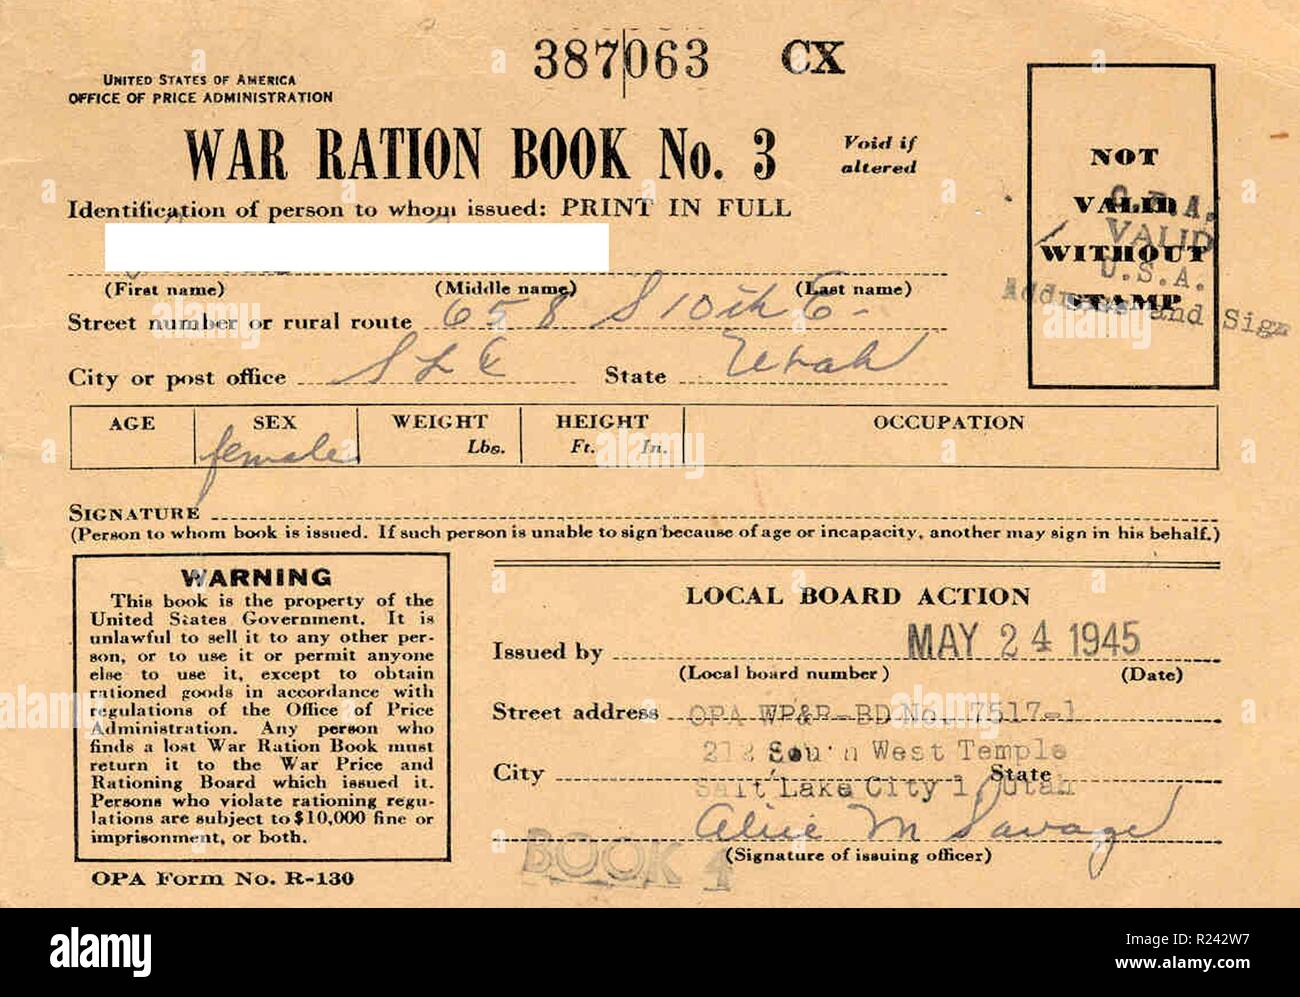 387063 CX
UNITED STATES OF AMERICA
OFFICE OF PRICE ADMINISTRATION
WAR RATION BOOK No. 3
Void if
altered
Identification of person to whom issued: PRINT IN FULL
(First name) (Middle name) (Last name)
Street number or rural route 658 S 10th E-
City or post office S L C State Utah
NOT
VALID
WITHOUT
STAMP
O.P.A.
VALID
U.S.A.
Address and Sign
AGE SEX WEIGHT HEIGHT OCCUPATION
female Lbs. Ft. In.
SIGNATURE
(Person to whom book is issued. If such person is unable to sign because of age or incapacity, another may sign in his behalf.)
WARNING
This book is the property of the
United States Government. It is
unlawful to sell it to any other per-
son, or to use it or permit anyone
else to use it, except to obtain
rationed goods in accordance with
regulations of the Office of Price
Administration. Any person who
finds a lost War Ration Book must
return it to the War Price and
Rationing Board which issued it.
Persons who violate rationing regu-
lations are subject to $10,000 fine or
imprisonment, or both.
OPA Form No. R-130
LOCAL BOARD ACTION
Issued by MAY 24 1945
(Local board number) (Date)
Street address OPA WP&R-BD No. 7517-1
212 South West Temple
City State
Salt Lake City 1, Utah
Alice M Savage
(Signature of issuing officer)
BOOK 4
alamy
Image ID: R242W7
www.alamy.com